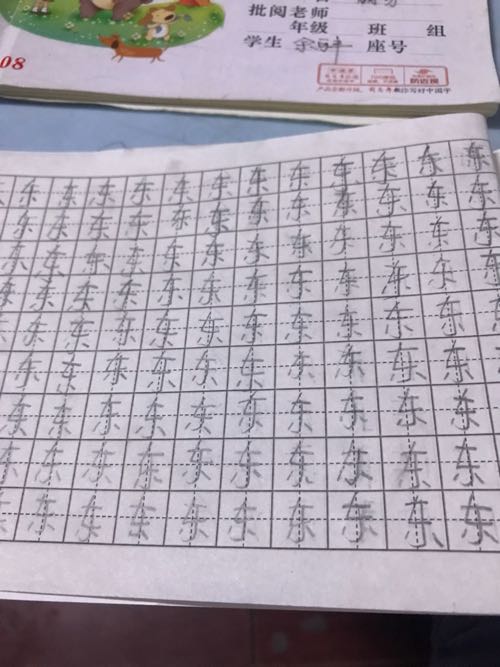 批阅老师
年级 班 组
学生 座号
08
防近视
教你写好中国字
东东东东东东东东东东东东
东东东东东东东东东东东东
东东东东东东东东东东东东
东东东东东东东东东东东东
东东东东东东东东东东东
东东东东东东东东东东东
东东东东东东东东东东
东东东东东东东东东东
东东东东东东东东东